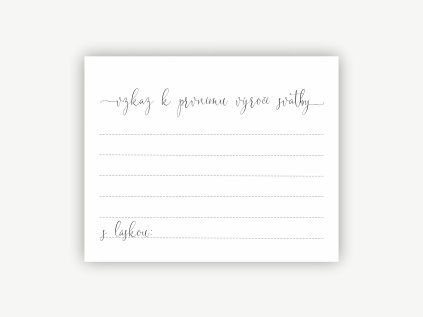 vzkaz k prvnímu výročí svatby
s láskou: